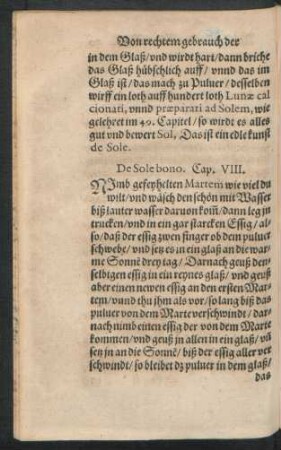 Von rechtem gebrauch der
in dem Glaß/vnd wirdt hart/dann briche
das Glaß hübschlich auff/ vnnd das im
Glaß ist/das mach zu Puluer/desselben
wirff ein loth auff hundert loth Lunæ cal
cionati, vnnd præparati ad Solem, wie
gelehret im 40. Capitel/so wirdt es alles
gut vnd bewert Sol, Das ist ein edle kunst
de Sole.
De Sole bono. Cap. VIII.
NImb gefeyhelten Martem wie viel du
wilt/vnd wäsch den schön mit Wasser
biß lauter wasser daruon kom̄/dann leg zu
trucken/vnd in ein gar starcken Essig/al-
so/daß der essig zwen finger ob dem puluer
schwebe/vnd setz es in ein glaß an die war-
me Sonnẽ drey tag/Darnach geuß den-
selbigen essig in ein reynes glaß/vnd geuß
aber einen newen essig an den ersten Mar-
tem/vund thu jhm als vor/so lang biß das
puluer von dem Marte verschwindt/dar-
nach nimb einen essig der von dem Marte
kommen/vnd geuß in allen in ein glaß/vñ
setz in an die Sonnẽ/biß der essig aller ver
schwindt/so bleibet dz puluer in dem glaß/
das